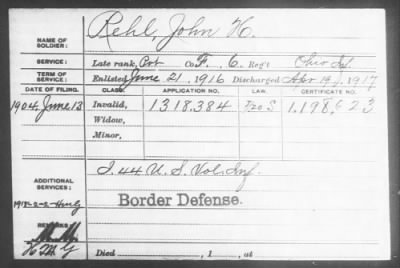 NAME OF SOLDIER: Rehl, John H.
SERVICE: Late rank, Pvt Co. F. 6. Reg't Ohio Inf
TERM OF SERVICE: Enlisted June 21, 1916 Discharged Apr 19, 1917
DATE OF FILING. CLASS. APPLICATION NO. LAW. CERTIFICATE NO.
1904, June 13 Invalid, 1318,384 1,198,623
Widow,
Minor,
ADDITIONAL SERVICES: I. 44 U. S. Vol. Inf.
Border Defense.
REMARKS
Died , 1 , at